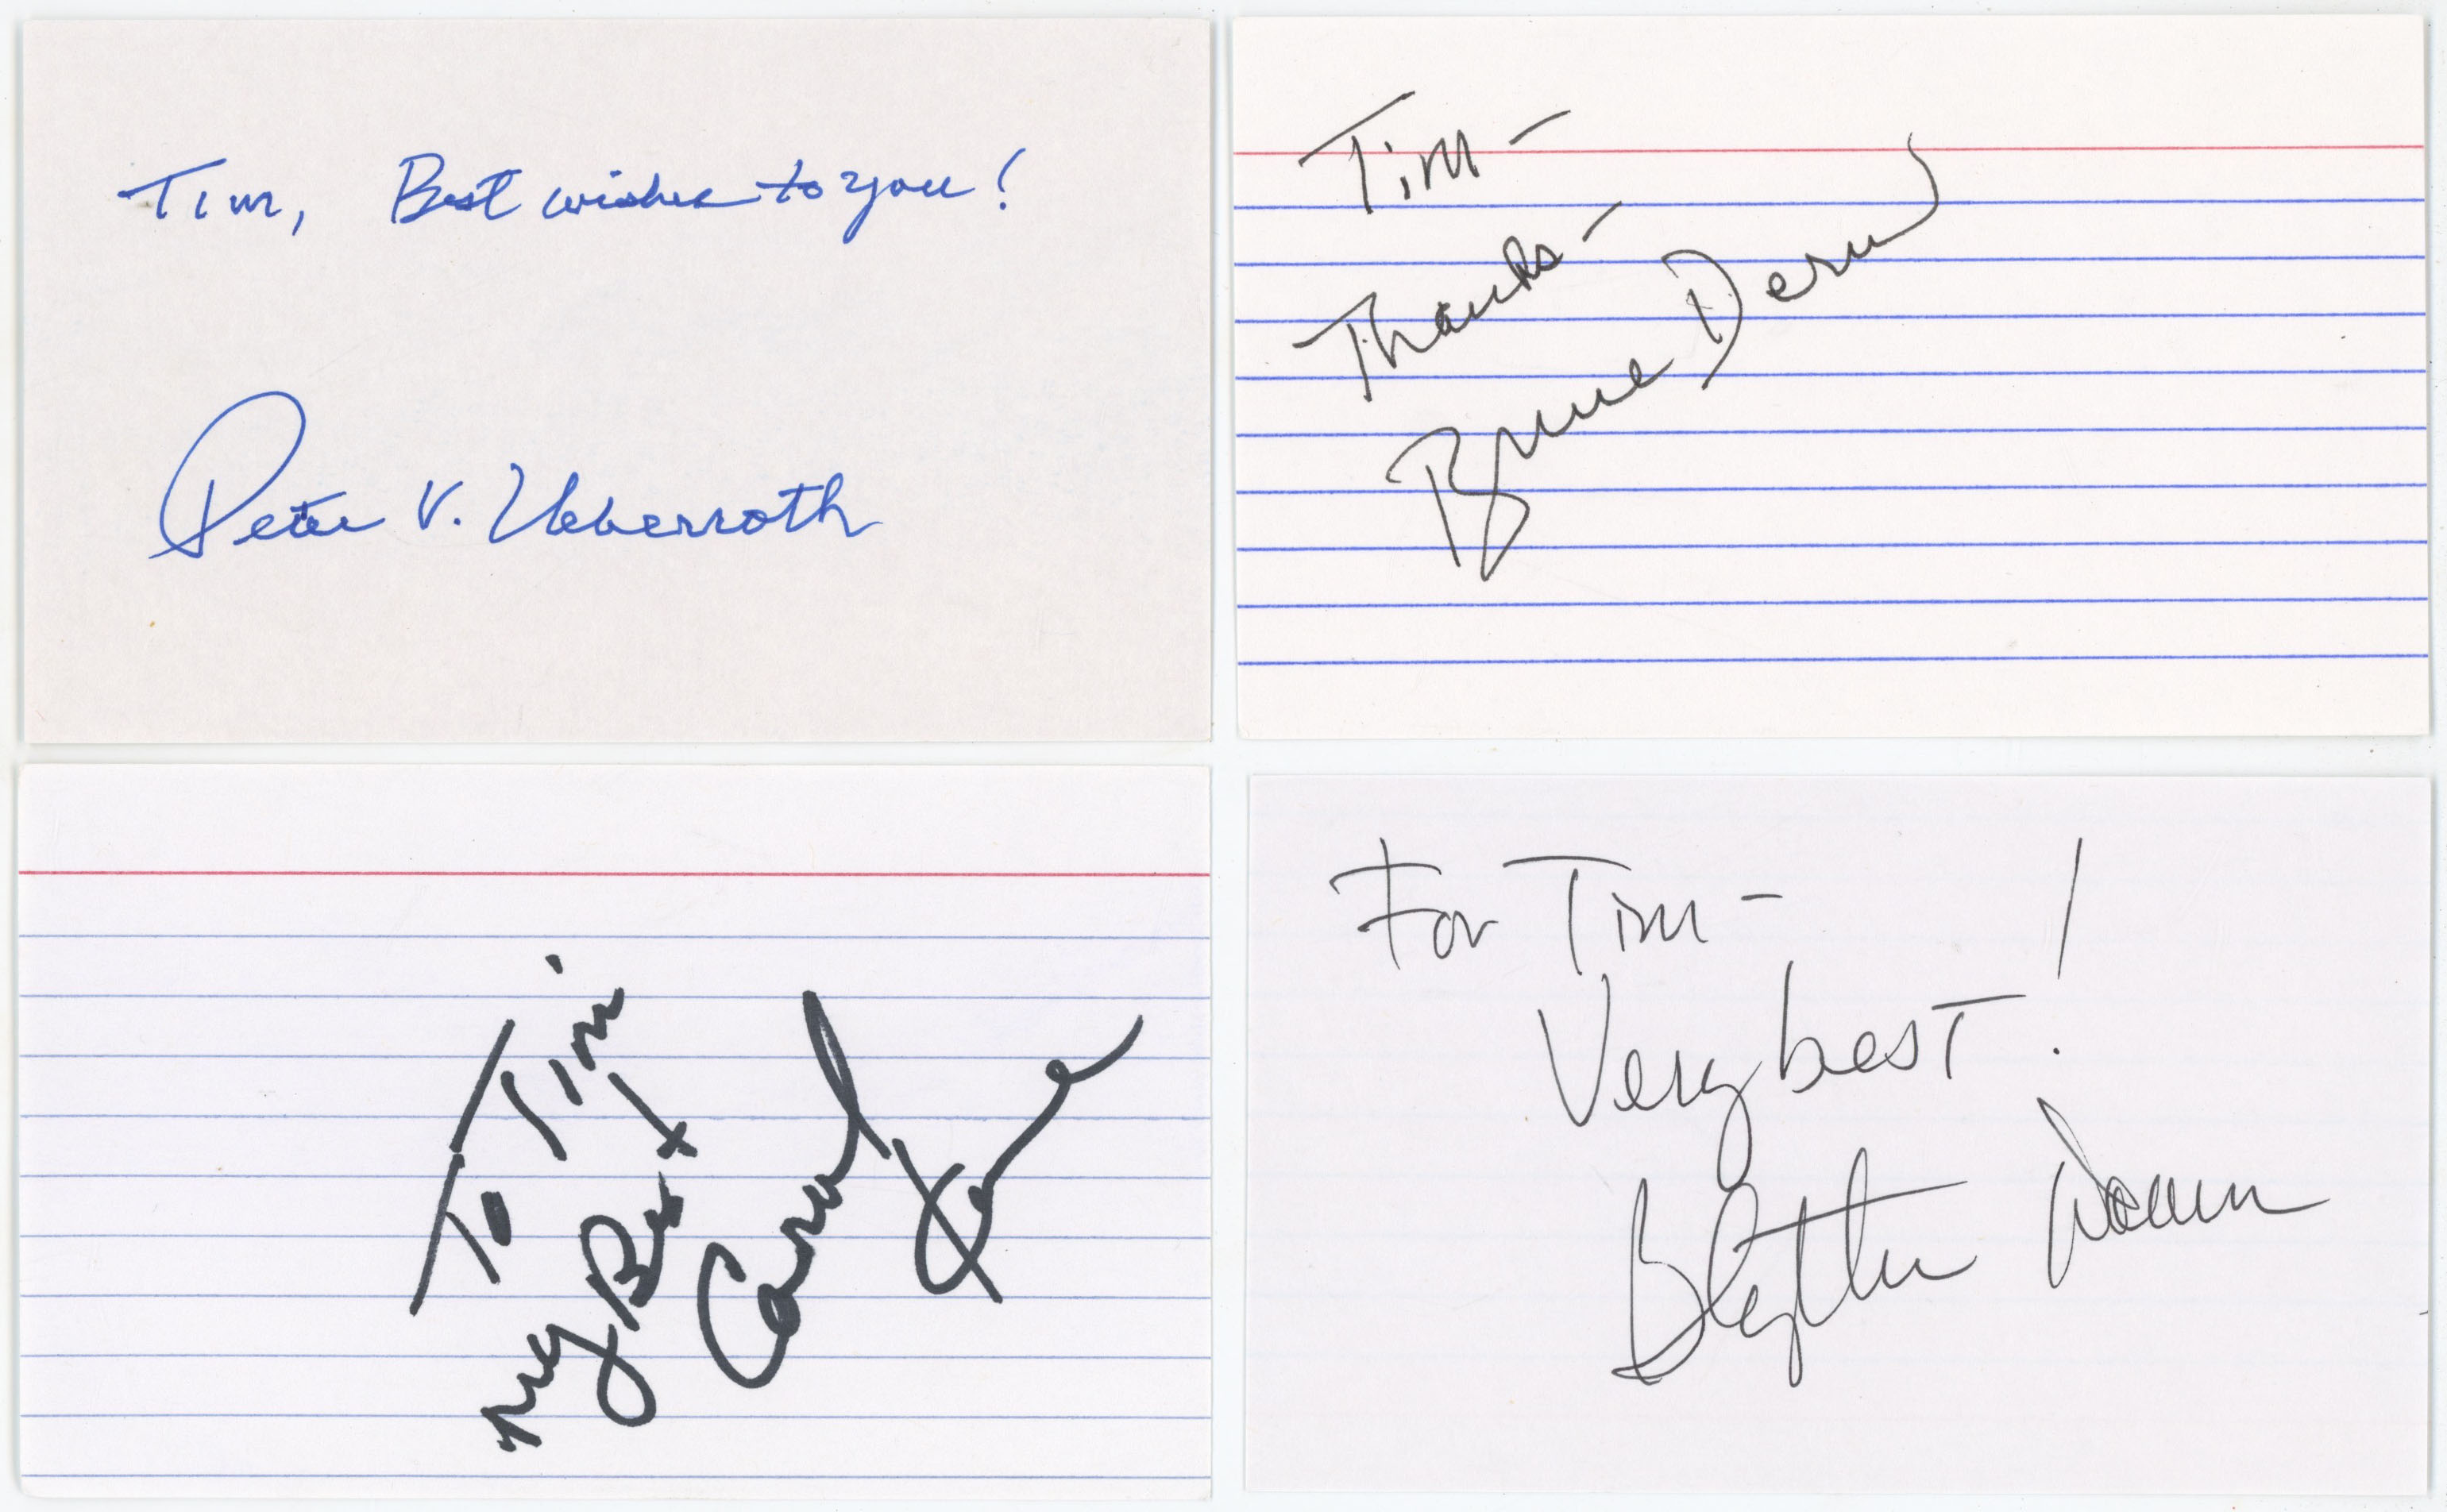 Tim, Best wishes to you!
Peter V. Ueberroth
Tim-
Thanks-
Bruce Dern
To Tim
My Best
Carol Kane
For Tim-
Very best!
Blythe Danner